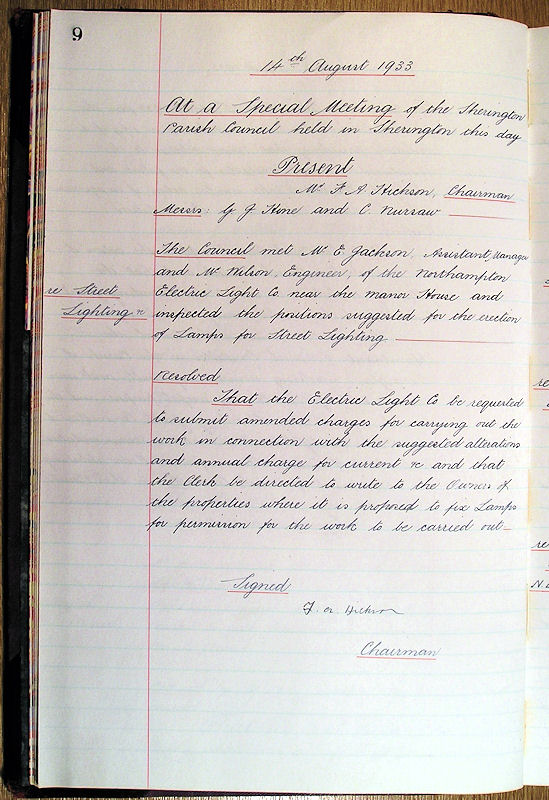 9
14th August 1933
At a Special Meeting of the Sherington
Parish Council held in Sherington this day
Present
Mr F. A. Hickson, Chairman
Messrs: G J Hine and C. Nursaw
The Council met Mr E Jackson, Assistant Manager
and Mr Wilson, Engineer, of the Northampton
re Street
Electric Light Co. near the Manor House and
Lighting &c
inspected the positions suggested for the erection
of Lamps for Street Lighting
Resolved
That the Electric Light Co be requested
to submit amended charges for carrying out the
work in connection with the suggested alterations
and annual charge for current &c and that
the Clerk be directed to write to the Owners of
the properties where it is proposed to fix Lamps
for permission for the work to be carried out-
Signed
F. A. Hickson
Chairman
re
re